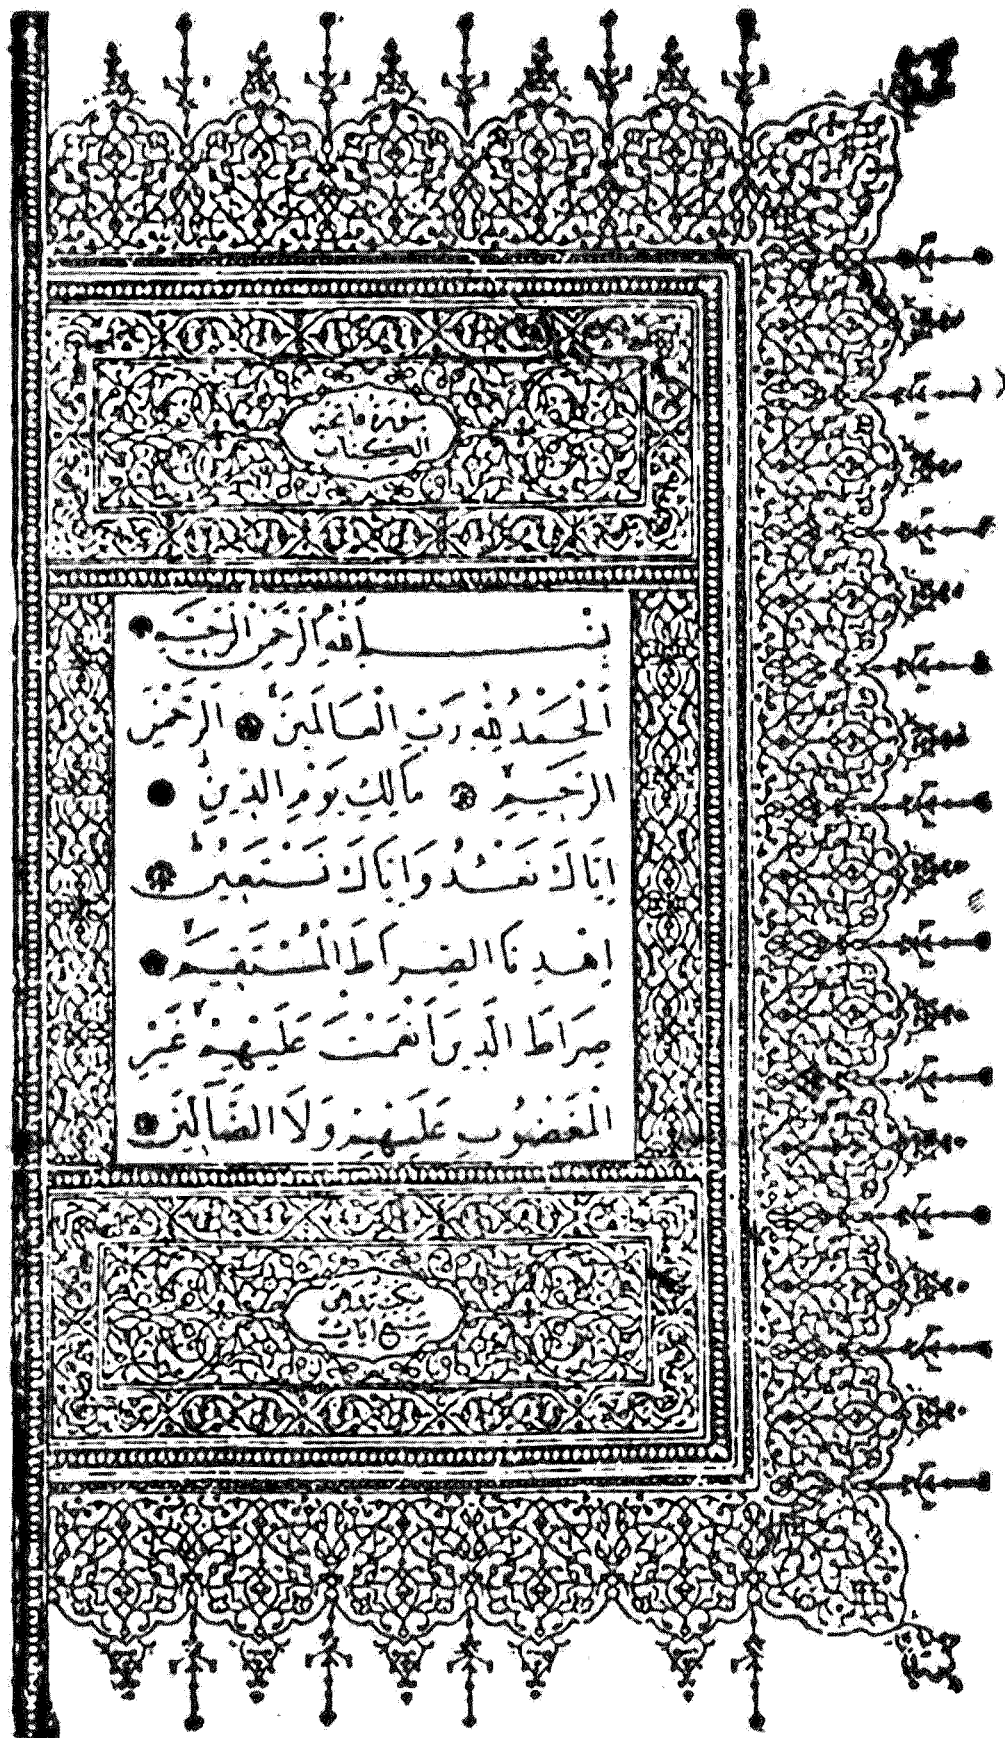 سورة فاتحة
الكتاب
بِسْمِ اللَّهِ الرَّحْمَنِ الرَّحِيمِ
اَلْحَمْدُ لِلَّهِ رَبِّ الْعَالَمِينَ الرَّحْمَنِ
الرَّحِيمِ مَالِكِ يَوْمِ الدِّينِ
اِيَّاكَ نَعْبُدُ وَاِيَّاكَ نَسْتَعِينُ
اِهْدِنَا الصِّرَاطَ الْمُسْتَقِيمَ
صِرَاطَ الَّذِينَ اَنْعَمْتَ عَلَيْهِمْ غَيْرِ
الْمَغْضُوبِ عَلَيْهِمْ وَلَا الضَّالِّينَ